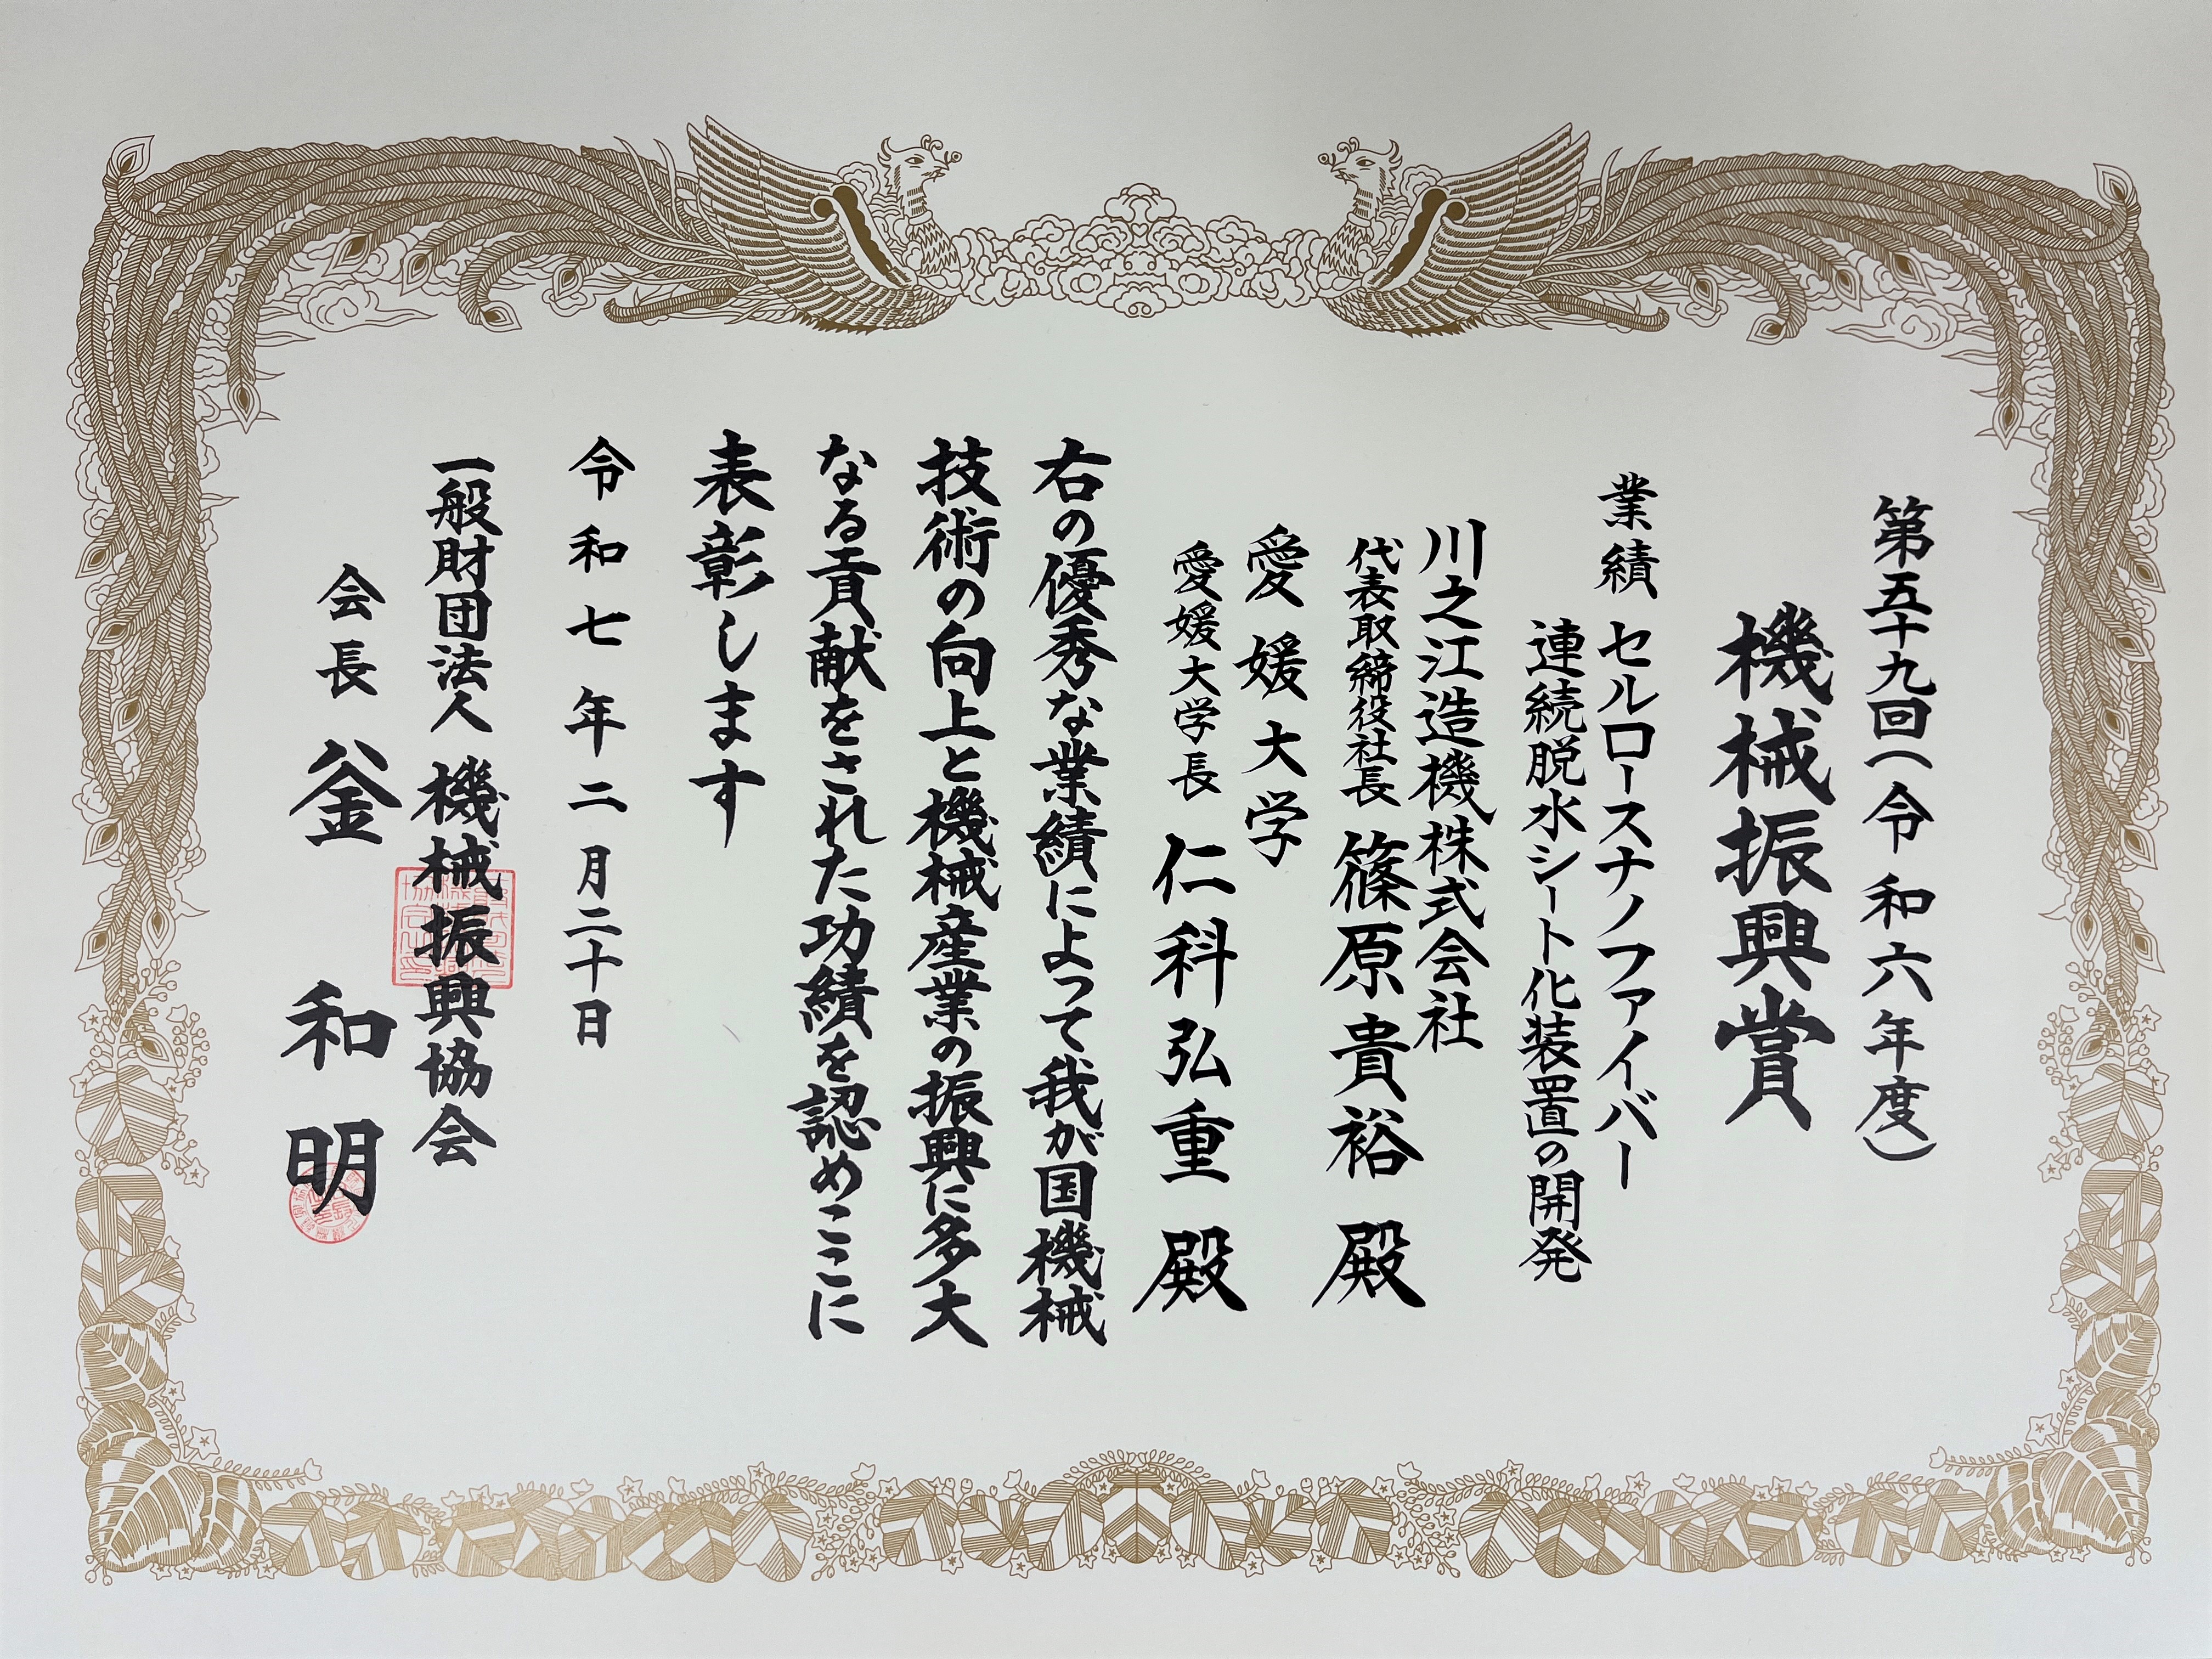 第五十九回（令和六年度）
機械振興賞
業績 セルロースナノファイバー
連続脱水シート化装置の開発
川之江造機株式会社
代表取締役社長 篠原貴裕 殿
愛媛大学
愛媛大学長 仁科弘重 殿
右の優秀な業績によって我が国機械
技術の向上と機械産業の振興に多大
なる貢献をされた功績を認めここに
表彰します
令和七年二月二十日
一般財団法人 機械振興協会
会長 釜 和明